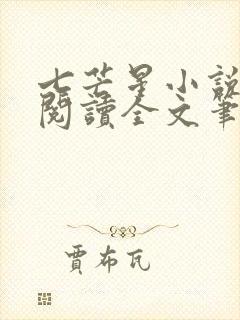 七芒星小說
閱讀全文筆
賈布瓦